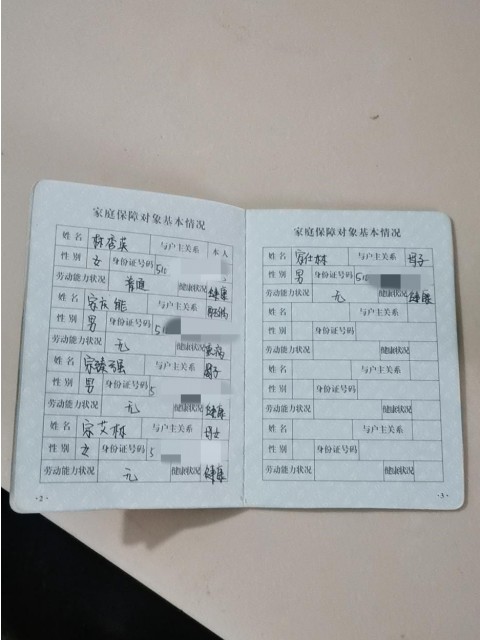 家庭保障对象基本情况
姓名 与户主关系 本人
性别 女 身份证号码 51
劳动能力状况 普通 健康状况 健康
姓名 与户主关系 配偶
性别 男 身份证号码 5
劳动能力状况 无 健康状况
姓名 与户主关系
性别 男 身份证号码 5
劳动能力状况 无 健康状况 健康
姓名 宗艾 与户主关系 母女
性别 女 身份证号码 5
劳动能力状况 无 健康状况 健康
·2·
家庭保障对象基本情况
姓名 与户主关系 母子
性别 男 身份证号码 51
劳动能力状况 无 健康状况 健康
姓名 与户主关系
性别 身份证号码
劳动能力状况 健康状况
姓名 与户主关系
性别 身份证号码
劳动能力状况 健康状况
姓名 与户主关系
性别 身份证号码
劳动能力状况 健康状况
·3·